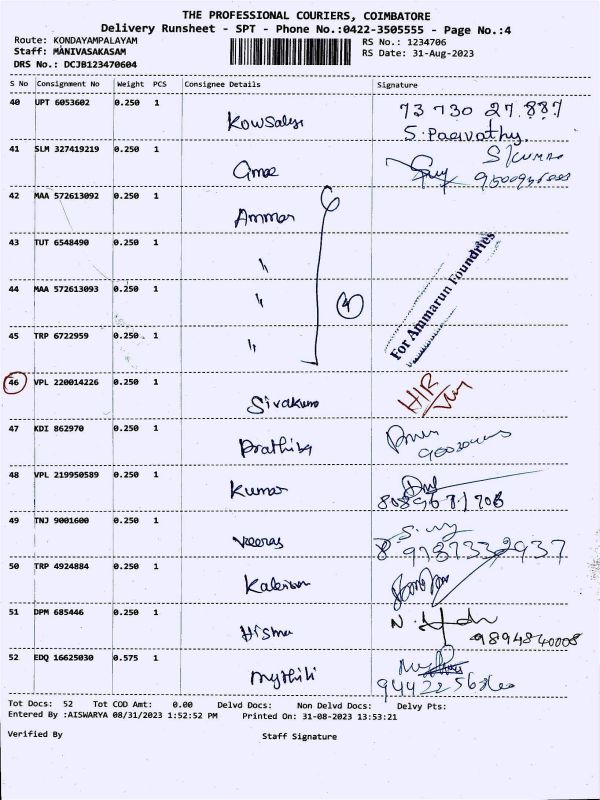 THE PROFESSIONAL COURIERS, COIMBATORE
Delivery Runsheet - SPT - Phone No.:0422-3505555 - Page No.:4
Route: KONDAYAMPALAYAM RS No.: 1234706
Staff: MANIVASAKASAM RS Date: 31-Aug-2023
DRS No.: DCJB123470604
S No Consignment No Weight PCS Consignee Details Signature
40 UPT 6053602 0.250 1 73 730 27.887
Kowsalya S. Paavathy.
41 SLM 327419219 0.250 1 S Kumar
42 MAA 572613092 0.250 1
Ammar
43 TUT 6548490 0.250 1
"
44 MAA 572613093 0.250 1
" 4
45 TRP 6722959 0.250 1
"
For Ammarun Foundries
46 VPL 220014226 0.250 1 HIR
Sivakum
47 KDI 862970 0.250 1
Prathiba
48 VPL 219950589 0.250 1
Kumar
49 TNJ 9001600 0.250 1
Veeras
50 TRP 4924884 0.250 1
51 DPM 685446 0.250 1
9894840008
52 EDQ 16625030 0.575 1
Mythili
Tot Docs: 52 Tot COD Amt: 0.00 Delvd Docs: Non Delvd Docs: Delvy Pts:
Entered By :AISWARYA 08/31/2023 1:52:52 PM Printed On: 31-08-2023 13:53:21
Verified By Staff Signature